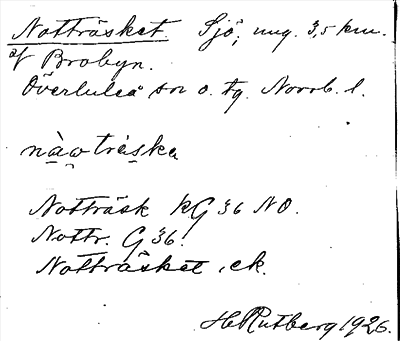 Notträsket. Sjö, ung. 3,5 km.
af Brobyn.
Överluleå sn o. tg. Norrb. l.
nàɷträska
Notträsk KG 36 NO.
Nottr. G 36.
Notträsket, ek.
H Rutberg 1926.